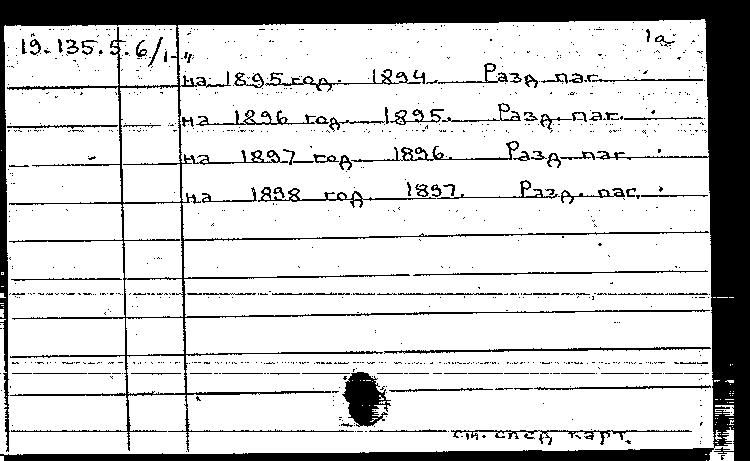 19.135.5.6/1-4
1а
на 1895 год. 1894. Разд. паг.
на 1896 год. 1895. Разд. паг.
на 1897 год. 1896. Разд. паг.
на 1898 год. 1897. Разд. паг.
см. след карт.